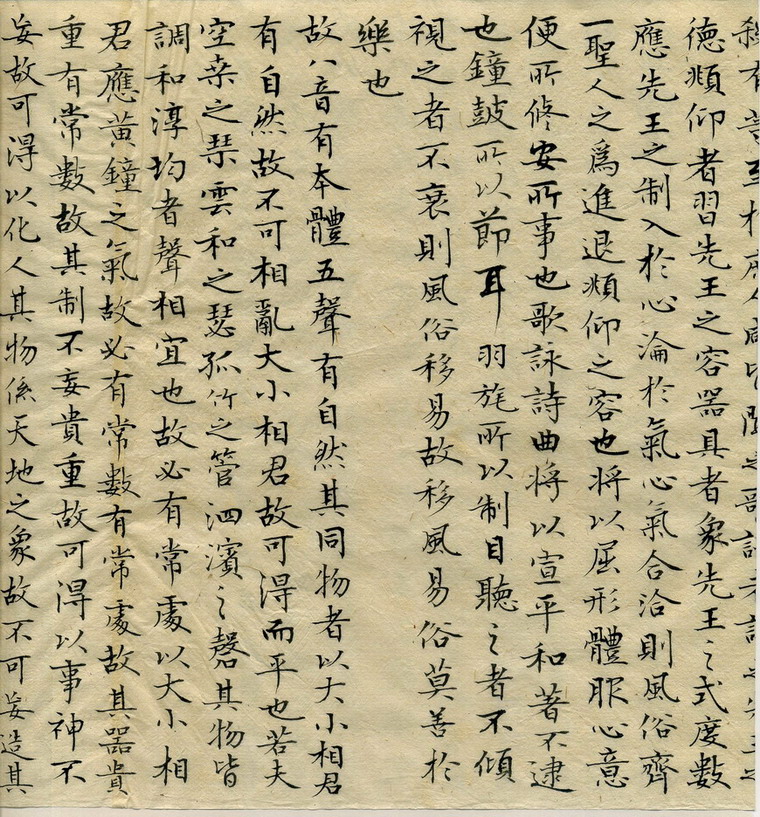 有等至於庶人
德頫仰者習先王之容器具者象先王之式度數
應先王之制入於心淪於氣心氣合洽則風俗齊
一聖人之爲進退頫仰之容也將以屈形體服心意
便所修安所事也歌詠詩曲將以宣平和著不逮
也鐘鼓所以節耳羽旄所以制目聽之者不傾
視之者不衰則風俗移易故移風易俗莫善於
樂也
故八音有本體五聲有自然其同物者以大小相君
有自然故不可相亂大小相君故可得而平也若夫
空桒之琹雲和之瑟孤竹之管泗濱之磬其物皆
調和淳均者聲相宜也故必有常處以大小相
君應黃鐘之氣故必有常數有常處故其器貴
重有常數故其制不妄貴重故可得以事神不
妄故可得以化人其物係天地之象故不可妄造其